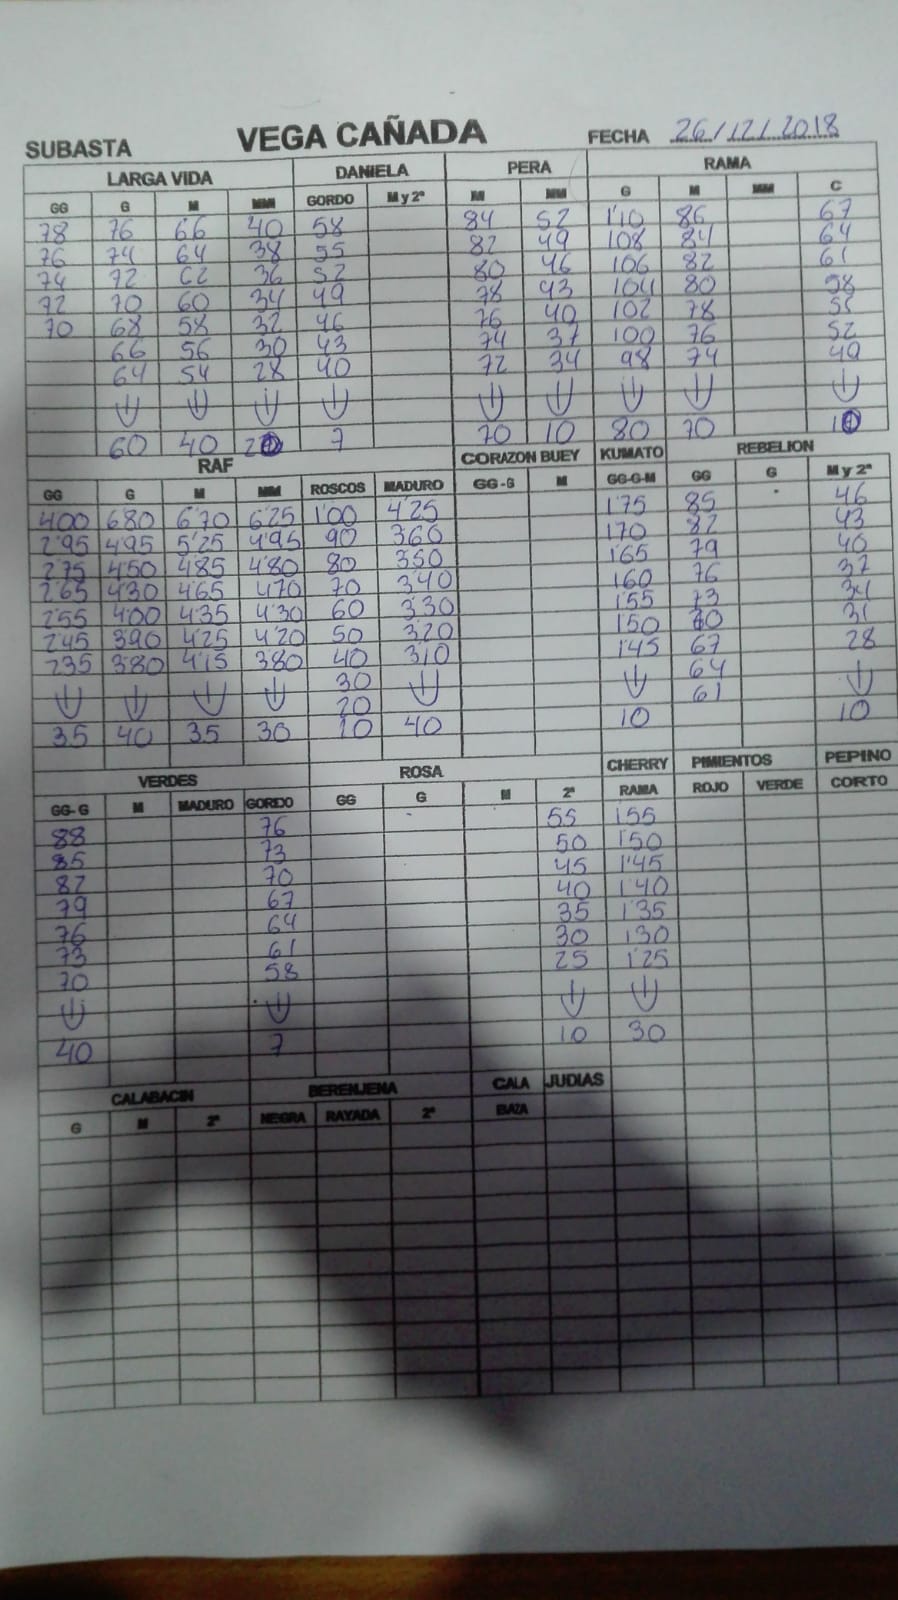 SUBASTA VEGA CAÑADA FECHA 26/12/2018
LARGA VIDA DANIELA PERA RAMA
GG G M MM GORDO M y 2ª M MM G M MM C
78 76 66 40 58 84 52 1'10 86 67
76 74 64 38 55 82 49 108 84 64
74 72 62 36 52 80 46 106 82 61
72 70 60 34 49 78 43 104 80 58
70 68 58 32 46 76 40 102 78 55
66 56 30 43 74 37 100 76 52
64 54 28 40 72 34 98 74 49
60 40 20 7 70 10 80 70 10
RAF CORAZON BUEY KUMATO REBELION
GG G M MM ROSCOS MADURO GG-G M GG-G-M GG G M y 2ª
400 680 6'70 6'25 1'00 4'25 1'75 85 46
2'95 4'95 5'25 4'95 90 360 170 82 43
2'75 450 485 4'80 80 350 1'65 79 40
2'65 430 465 470 70 340 160 76 37
255 400 435 430 60 330 155 73 34
245 390 425 420 50 320 150 70 31
235 380 415 380 40 310 145 67 28
30 64
20 61
35 40 35 30 10 40 10 10
VERDES ROSA CHERRY PIMIENTOS PEPINO
GG-G M MADURO GORDO GG G M 2ª RAMA ROJO VERDE CORTO
88 76 55 155
85 73 50 150
82 70 45 1'45
79 67 40 1'40
76 64 35 1'35
73 61 30 130
70 58 25 125
40 7 10 30
CALABACIN BERENJENA CALA JUDIAS
G M 2ª NEGRA RAYADA 2ª BAZA